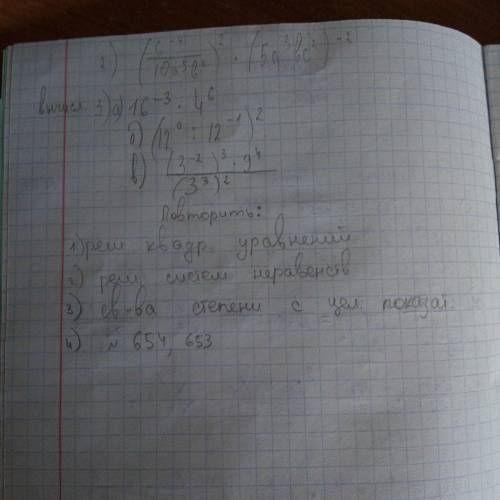 2) (c⁻⁴/10a⁵b²)² · (5a³bc²)⁻²
вычисл. 3) а) 16⁻³ · 4⁶
б) (12⁰ : 12⁻¹)²
в) (3⁻²)³ · 9⁴ / (3³)²
Повторить:
1) реш квадр уравнений
2) реш. систем неравенств
3) св-ва степени с цел. показат.
4) № 654, 653